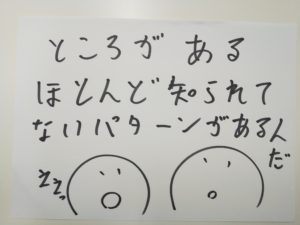 ところが ある
ほとんど知られて
ないパターンがあるんだ
えっ